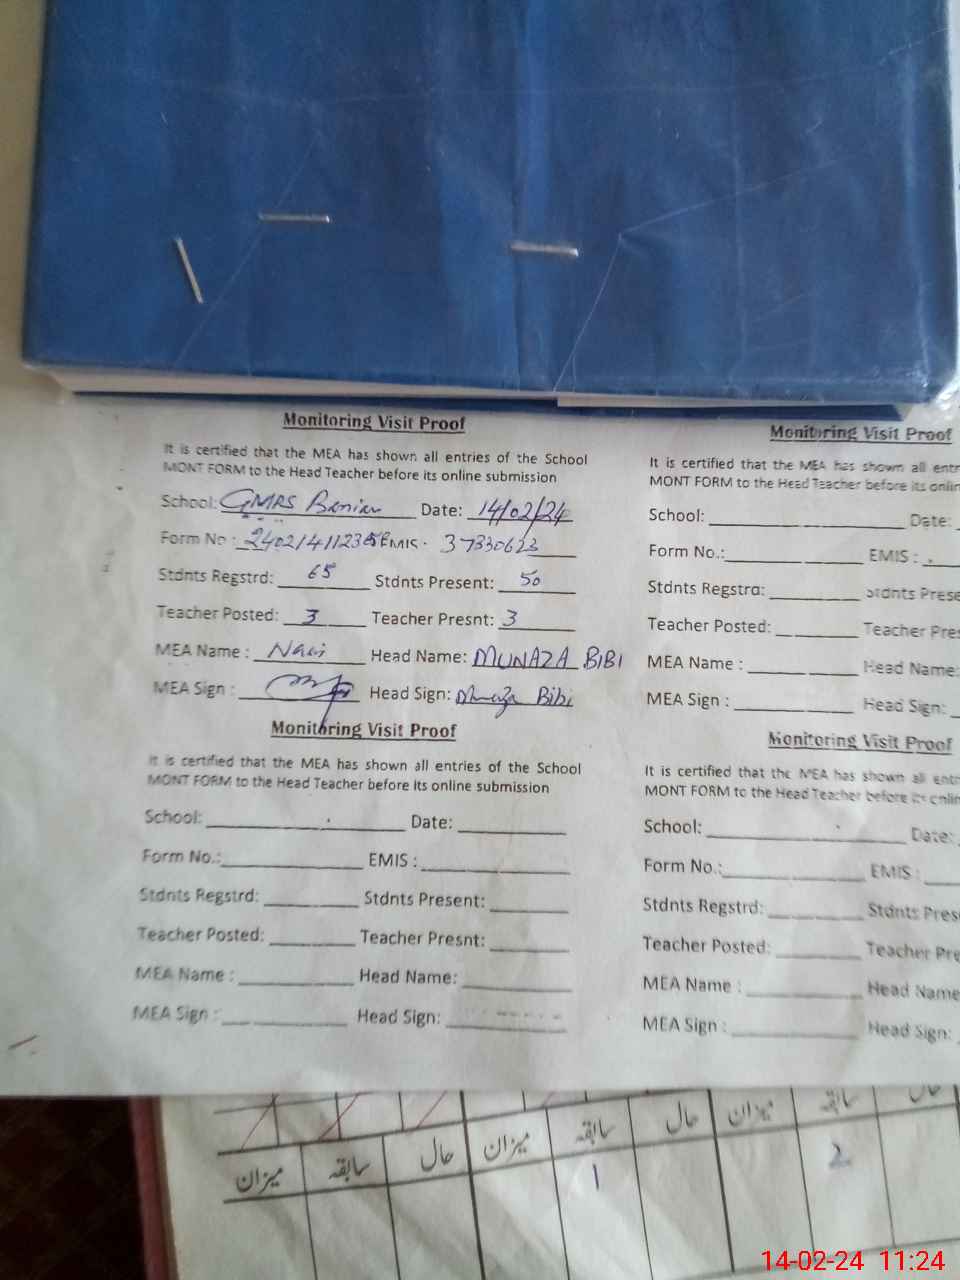 Monitoring Visit Proof
It is certified that the MEA has shown all entries of the School
MONT FORM to the Head Teacher before its online submission
School: GMRS Banian Date: 14/02/24
Form No : EMIS : 37330623
Stdnts Regstrd: 65 Stdnts Present: 50
Teacher Posted: 3 Teacher Presnt: 3
MEA Name : Head Name: MUNAZA BIBI
MEA Sign : Head Sign: Munaza Bibi
Monitoring Visit Proof
It is certified that the MEA has shown all
MONT FORM to the Head Teacher before its
School: Date:
Form No.: EMIS :
Stdnts Regstrd: Stdnts
Teacher Posted: Teacher
MEA Name : Head Name:
MEA Sign : Head Sign:
Monitoring Visit Proof
It is certified that the MEA has shown all entries of the School
MONT FORM to the Head Teacher before its online submission
School: Date:
Form No.: EMIS :
Stdnts Regstrd: Stdnts Present:
Teacher Posted: Teacher Presnt:
MEA Name : Head Name:
MEA Sign : Head Sign:
Monitoring Visit Proof
It is certified that the MEA has shown all
MONT FORM to the Head Teacher before its
School: Date:
Form No.: EMIS :
Stdnts Regstrd: Stdnts
Teacher Posted: Teacher
MEA Name : Head Name
MEA Sign : Head Sign:
میزان سابقہ حال میزان سابقہ حال میزان سابقہ حال
1 2
14-02-24 11:24